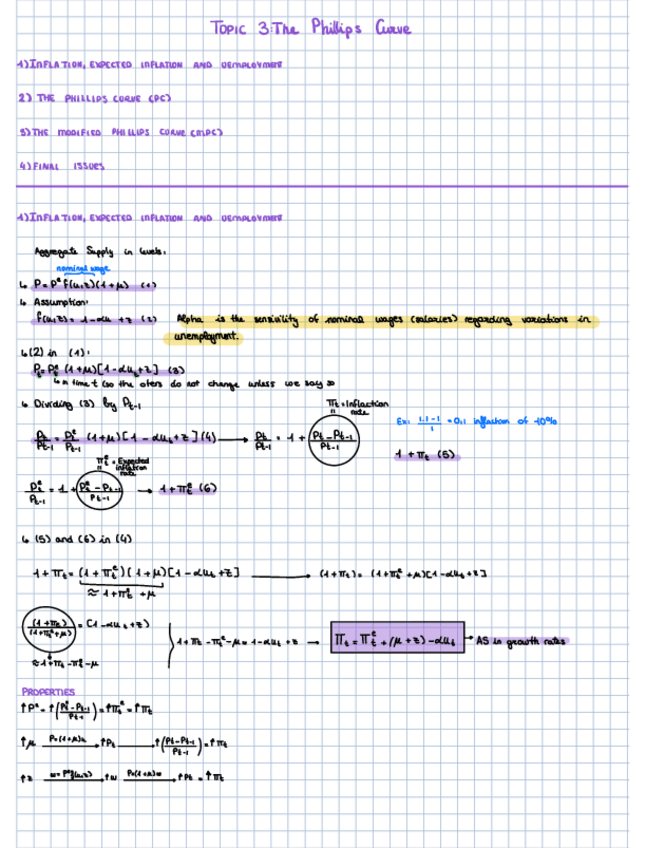 TOPIC 3:The Phillips Curve
1) INFLATION, EXPECTED INFLATION AND UEMPLOYMENT
2) THE PHILLIPS CURVE (PC)
3) THE MODIFIED PHILLIPS CURVE (MPC)
4) FINAL ISSUES
1) INFLATION, EXPECTED INFLATION AND UEMPLOYMENT
Aggregate Supply in levels:
nominal wage
↳ P = Pᵉ F(u,z)(1+μ) (1)
↳ Assumption:
F(u,z) = 1-αu + z (2) Alpha is the sensibility of nominal wages (salaries) regarding variations in
unemployment.
↳ (2) in (1):
Pt = Ptᵉ (1+μ)[1-αut+z] (3)
↳ in time t (so the others do not change unless we say so
↳ Dividing (3) by Pt-1
πt = Inflaction rate
Ex: (1.1-1)/1 = 0.1 inflaction of 10%
Pt/Pt-1 = Ptᵉ/Pt-1 (1+μ)[1-αut+z] (4) → Pt/Pt-1 = 1 + (Pt-Pt-1)/Pt-1
1+πt (5)
πtᵉ = Expected inflation rate
Ptᵉ/Pt-1 = 1 + (Ptᵉ-Pt-1)/Pt-1 → 1+πtᵉ (6)
↳ (5) and (6) in (4)
1+πt = (1+πtᵉ)(1+μ)[1-αut+z] → (1+πt) = (1+πtᵉ+μ)[1-αut+z]
≈ 1+πtᵉ+μ
(1+πt)/(1+πtᵉ+μ) = [1-αut+z) 1+πt-πtᵉ-μ = 1-αut+z → πt = πtᵉ + (μ+z) - αut → AS in growth rates
≈ 1+πt-πtᵉ-μ
PROPERTIES
↑Pᵉ = ↑((Ptᵉ-Pt-1)/Pt-1) = ↑πtᵉ = ↑πt
↑μ P=(1+μ)w → ↑Pt → ↑((Pt-Pt-1)/Pt-1) = ↑πt
↑z w=Pᵉf(u,z) → ↑w P=(1+μ)w → ↑Pt = ↑πt